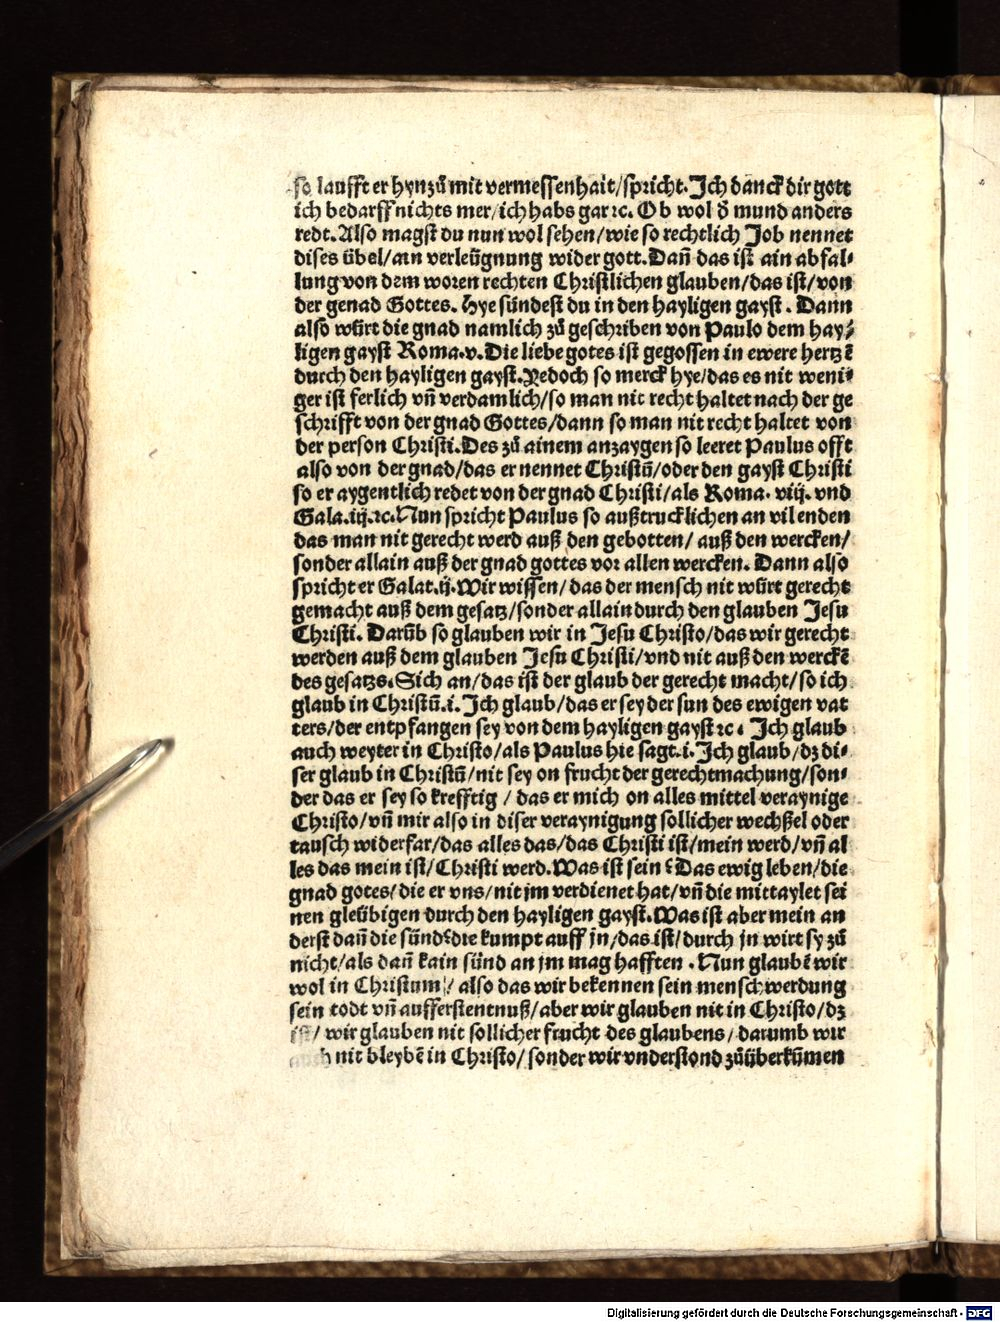 so laufft er hynzů mit vermessenhait/spricht. Ich danck dir gott
ich bedarff nichts mer/ich habs gar ꝛc. Ob wol d̄ mund anders
redt. Also magst du nun wol sehen/wie so rechtlich Job nennet
dises übel/ain verleügnung wider gott. Dañ das ist ain abfal⸗
lung von dem woren rechten Christlichen glauben/das ist/von
der genad Gottes. Hye sündest du in den hayligen gayst. Dann
also würt die gnad namlich zů geschriben von Paulo dem hay⸗
ligen gayst Roma.v. Die liebe gotes ist gegossen in ewere hertzē
durch den hayligen gayst. Yedoch so merck hye/das es nit weni⸗
ger ist ferlich vñ verdamlich/so man nit recht haltet nach der ge
schrifft von der gnad Gottes/dann so man nit recht haltet von
der person Christi. Des zů ainem anzaygen so leeret Paulus offt
also von der gnad/das er nennet Christū/oder den gayst Christi
so er aygentlich redet von der gnad Christi/als Roma. viij. vnd
Gala.iij.ꝛc. Nun spricht Paulus so außtrucklichen an vil enden
das man nit gerecht werd auß den gebotten/ auß den wercken/
sonder allain auß der gnad gottes vor allen wercken. Dann also
spricht er Galat.ij. Wir wissen/das der mensch nit würt gerecht
gemacht auß dem gesatz/sonder allain durch den glauben Jesu
Christi. Darūb so glauben wir in Jesu Christo/das wir gerecht
werden auß dem glauben Jesu Christi/vnd nit auß den werckē
des gesatzs. Sich an/das ist der glaub der gerecht macht/so ich
glaub in Christū.i. Ich glaub/das er sey der sun des ewigen vat
ters/der entpfangen sey von dem hayligen gayst ꝛc. Ich glaub
auch weyter in Christo/als Paulus hie sagt.i. Ich glaub/dz di⸗
ser glaub in Christū/nit sey on frucht der gerechtmachung/son⸗
der das er sey so krefftig / das er mich on alles mittel veraynige
Christo/vñ mir also in diser veraynigung sollicher wechßel oder
tausch widerfar/das alles das/das Christi ist/mein werd/vñ al
les das mein ist/Christi werd. Was ist sein? Das ewig leben/die
gnad gotes/die er vns/nit jm verdienet hat/vñ die mittaylet sei
nen gleübigen durch den hayligen gayst. Was ist aber mein an
derst dañ die sünd? die kumpt auff jn/das ist/durch jn wirt sy zů
nicht/als dañ kain sünd an jm mag hafften. Nun glaubē wir
wol in Christum/ also das wir bekennen sein menschwerdung
sein todt vñ aufferstentnuß/aber wir glauben nit in Christo/dz
ist/ wir glauben nit sollicher frucht des glaubens/darumb wir
auch nit bleybē in Christo/sonder wir vnderstond zůüberkūmen
Digitalisierung gefördert durch die Deutsche Forschungsgemeinschaft - DFG